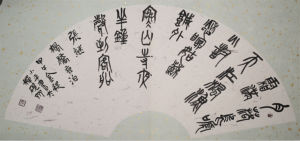 月落烏啼
霜滿
天江楓漁火
對愁眠姑蘇
城外
寒山寺夜
半鐘
聲到客船
張继
楓橋夜泊